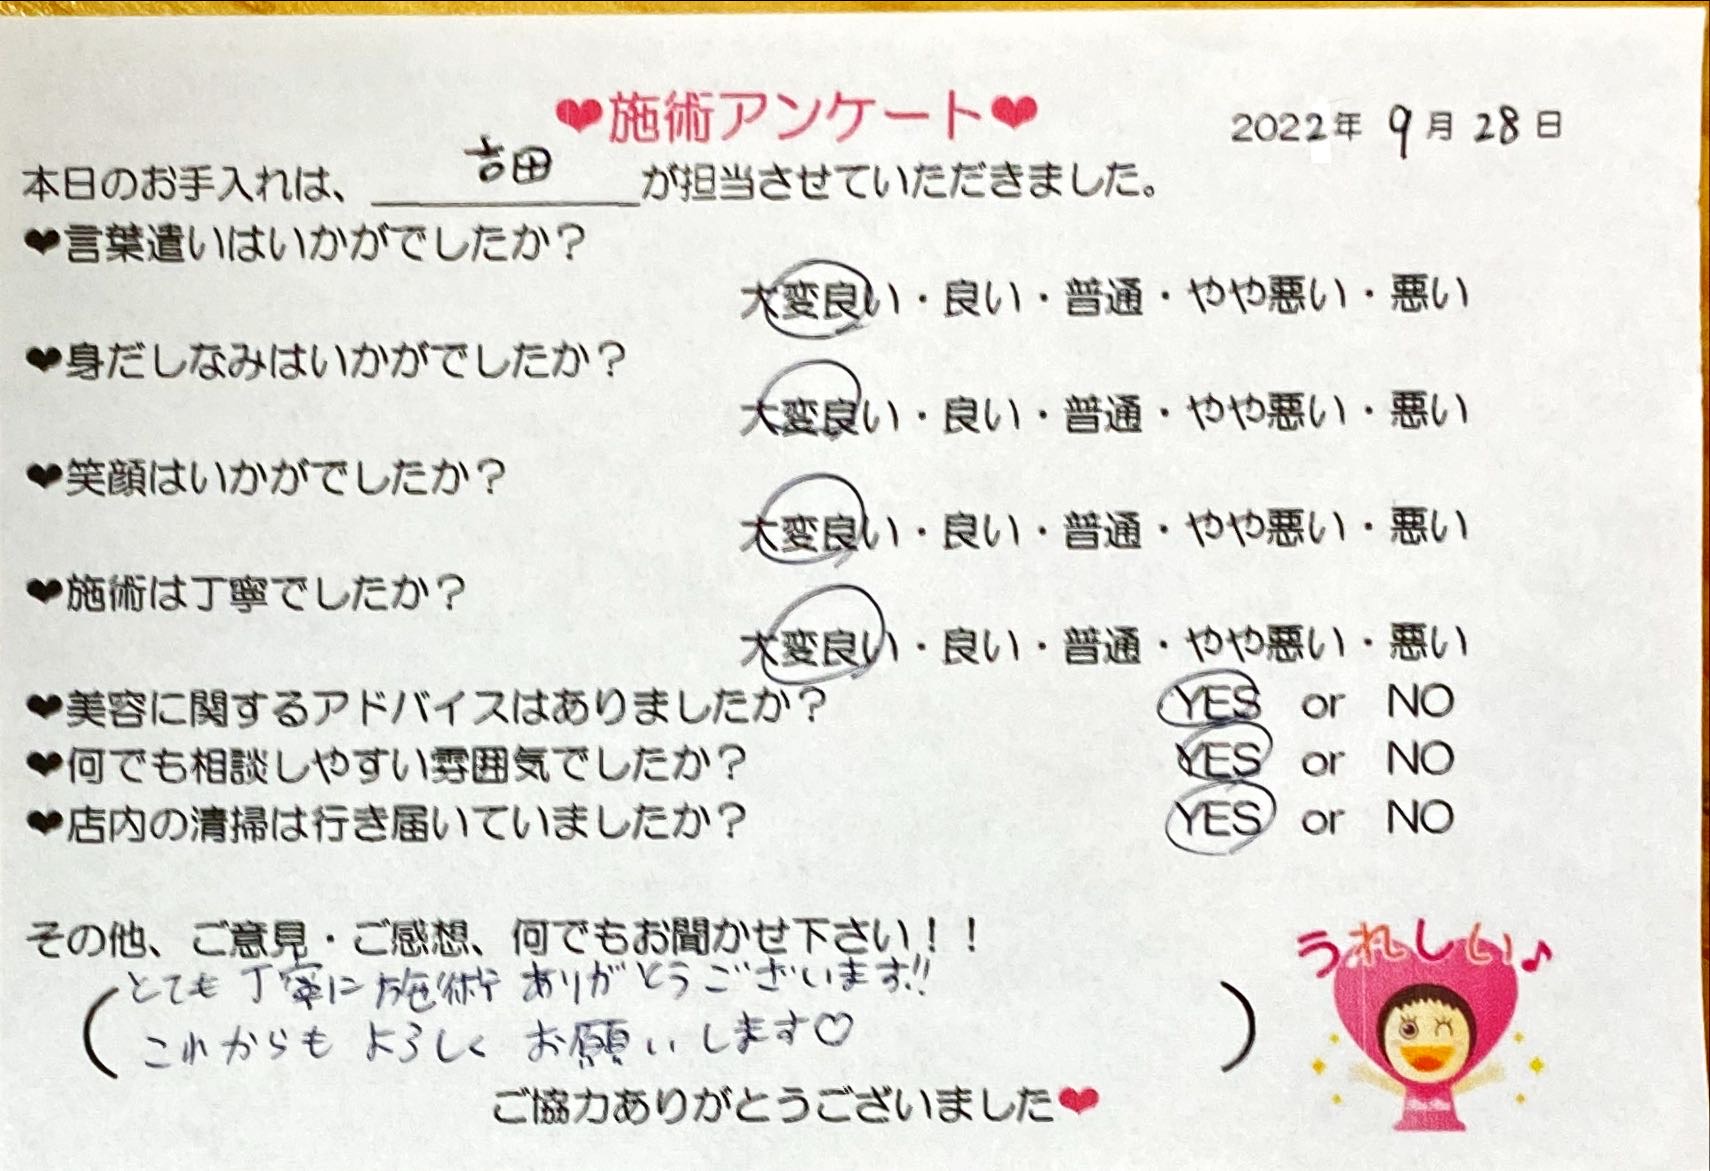 ❤施術アンケート❤
2022年 9月 28日
本日のお手入れは、 吉田 が担当させていただきました。
❤言葉遣いはいかがでしたか？
大変良い・良い・普通・やや悪い・悪い
❤身だしなみはいかがでしたか？
大変良い・良い・普通・やや悪い・悪い
❤笑顔はいかがでしたか？
大変良い・良い・普通・やや悪い・悪い
❤施術は丁寧でしたか？
大変良い・良い・普通・やや悪い・悪い
❤美容に関するアドバイスはありましたか？ YES or NO
❤何でも相談しやすい雰囲気でしたか？ YES or NO
❤店内の清掃は行き届いていましたか？ YES or NO
その他、ご意見・ご感想、何でもお聞かせ下さい！！
(とても丁寧に施術ありがとうございます!!
これからもよろしくお願いします♡)
うれしい♪
ご協力ありがとうございました❤